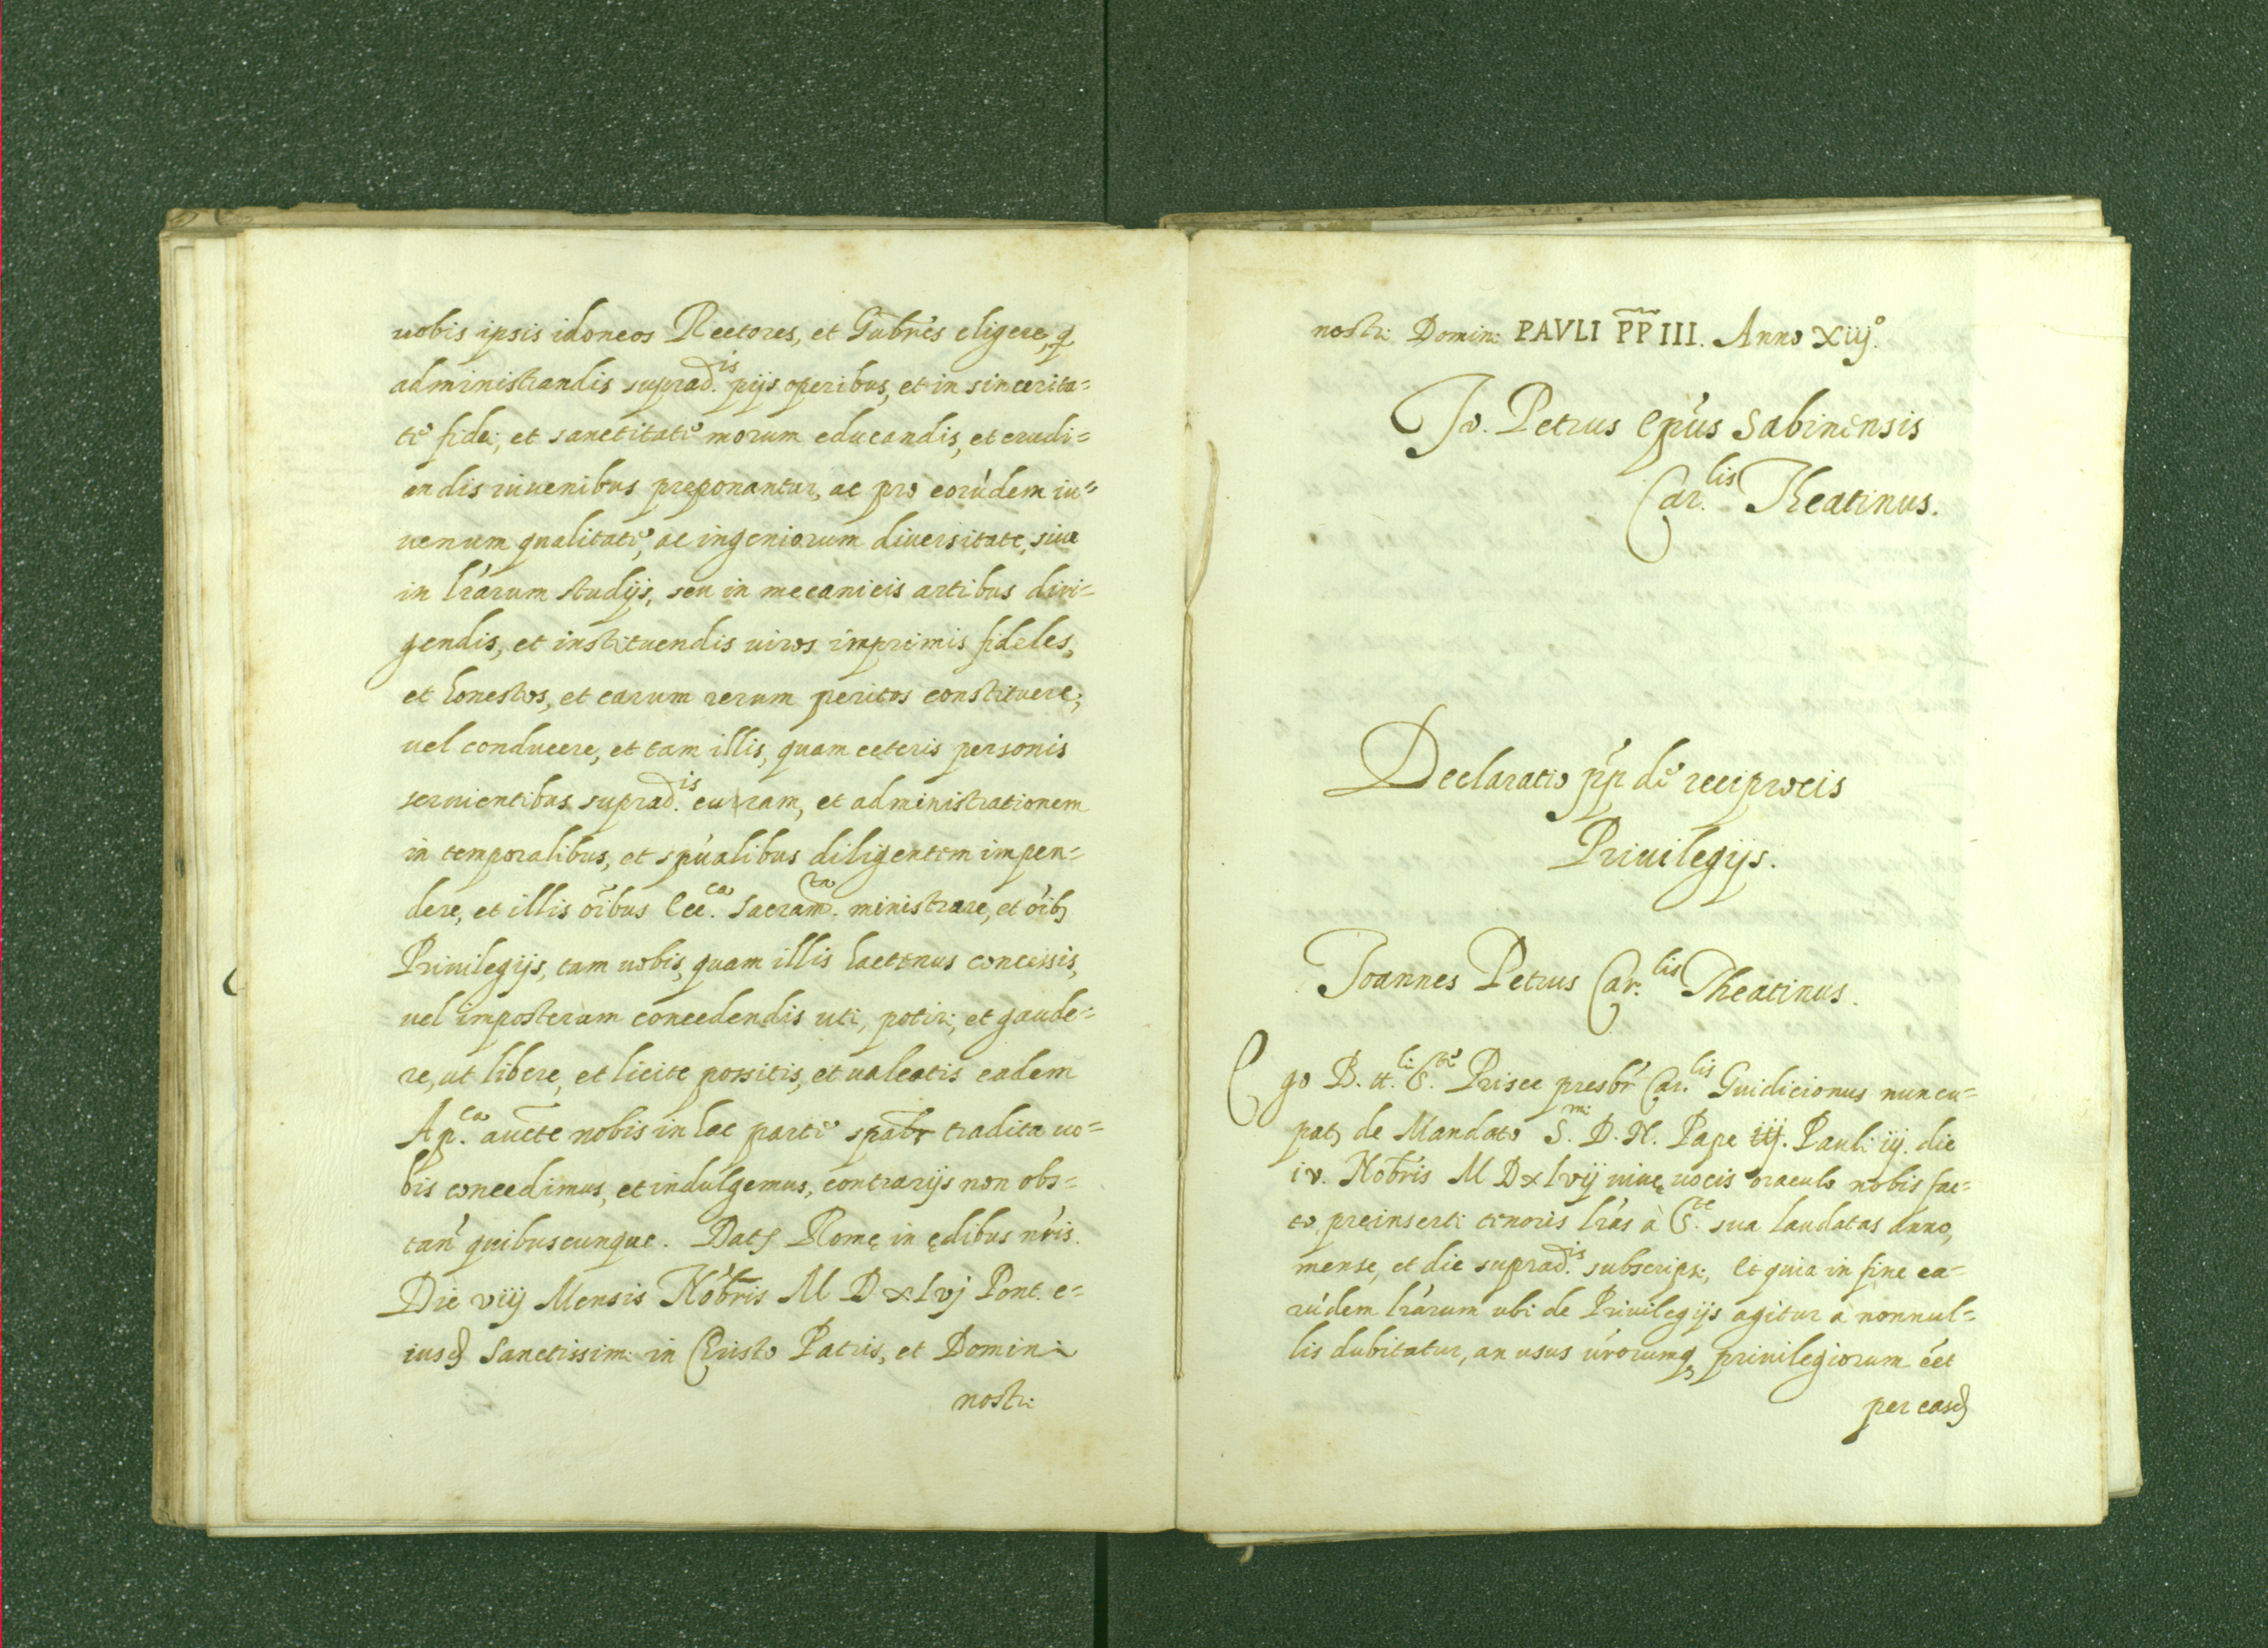 uobis ipsis idoneos Rectores, et Gubr̃es eligere, q̨
administrandis suprad.is pijs operibus, et in sincerita=
te fidei, et sanctitate morum educandis, et erudi=
endis iuuenibus preponantur, ac pro eorúdem iu=
uenum qualitate, ac ingeniorum diuersitate, siue
in l'rarum studijs, seu in mecanicis artibus diri=
gendis, et instituendis uiros imprimis fideles,
et honestos, et earum rerum peritos constituere,
uel conducere, et tam illis, quam ceteris personis
seruientibus suprad.is curam, et administrationem
in temporalibus, et sp'ualibus diligentem impen=
dere, et illis oĩbus Ecc.ca Sacram.ta ministrare, et oĩbꝫ
Priuilegijs, tam uobis, quam illis hactenus concessis,
uel imposterum concedendis uti, potiri, et gaude=
re, ut libere, et licite possitis, et ualeatis eadem
Ap.ca aucte nobis in hac parte spalr tradita uo=
bis concedimus, et indulgemus, contrarijs non obs=
tan' quibuscunque. Datꝭ Romę in ędibus n'ris.
Die viij Mensis Nobr̃is M D xlvj Pont. e=
iusd Sanctissimi in Christo Patris, et Domini
nostri
nostri Domini PAVLI PP III. Anno xiij.º
Jo. Petrus Ep'us Sabinensis
Car.lis Theatinus.
Declaratio p'p de reciprocis
Priuilegijs.
Joannes Petrus Car.lis Theatinus.
Ego B. tt.li S.te Prisce presbr' Car.lis Guidicionus nuncu=
patꝫ de Mandato S.mi D. N. Pape iij. Pauli iij. die
iv. Nobr̃is M D xlvij uiuę uocis oraculo nobis fac=
to, preinserti tenoris l'ras à S.te sua laudatas anno,
mense, et die suprad.is subscripsi, Et quia in fine ea=
rúdem l'rarum ubi de Priuilegijs agitur a nonnul=
lis dubitatur, an usus úrorumqꝫ priuilegiorum éet
per easd